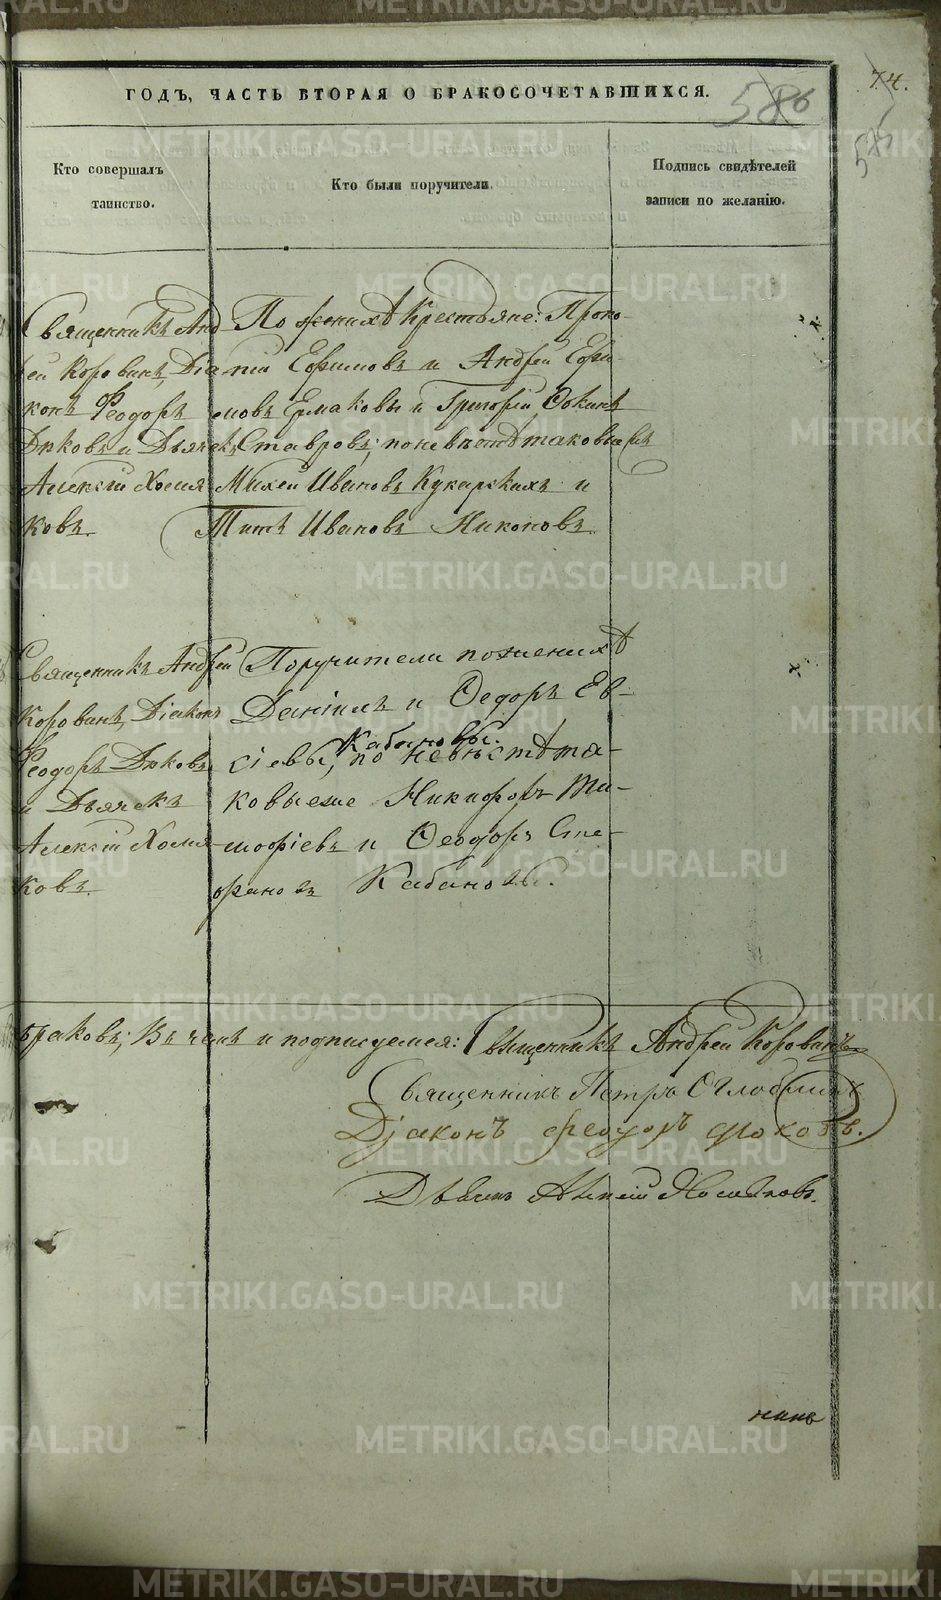 74.
ГОДЪ, ЧАСТЬ ВТОРАЯ О БРАКОСОЧЕТАВШИХСЯ.
586
Кто совершалъ
таинство.
Кто были поручители.
Подпись свидѣтелей
записи по желанію.
Священникъ Анд
рей Корованъ, Діа
конъ Феодоръ
и Дьячекъ
Алексій Хомя
ковъ.
По женихѣ Крестьяне: Проко-
пій Ефимовъ и Андрей Ефи-
мовъ Ермаковы и Григорій
Ставровъ; по невѣстѣ таковые же
Михей Ивановъ Кукарскихъ и
Титъ Ивановъ Никоновъ.
Священникъ Андрей
Корованъ, Діаконъ
Феодоръ
и Дьячекъ
Алексій Хомя-
ковъ.
Поручители по женихѣ
Даніилъ и Ѳедоръ Ев-
сіевы Кабановы, по невѣстѣ та-
ковые же Никифоръ Ти-
мофіевъ и Ѳеодоръ Сте-
фановъ Кабановы.
браковъ; Въ чемъ и подписуемся: Священникъ Андрей Корованъ
Священникъ Петръ Оглоблинъ
Діаконъ Феодоръ
METRIKI.GASO-URAL.RU